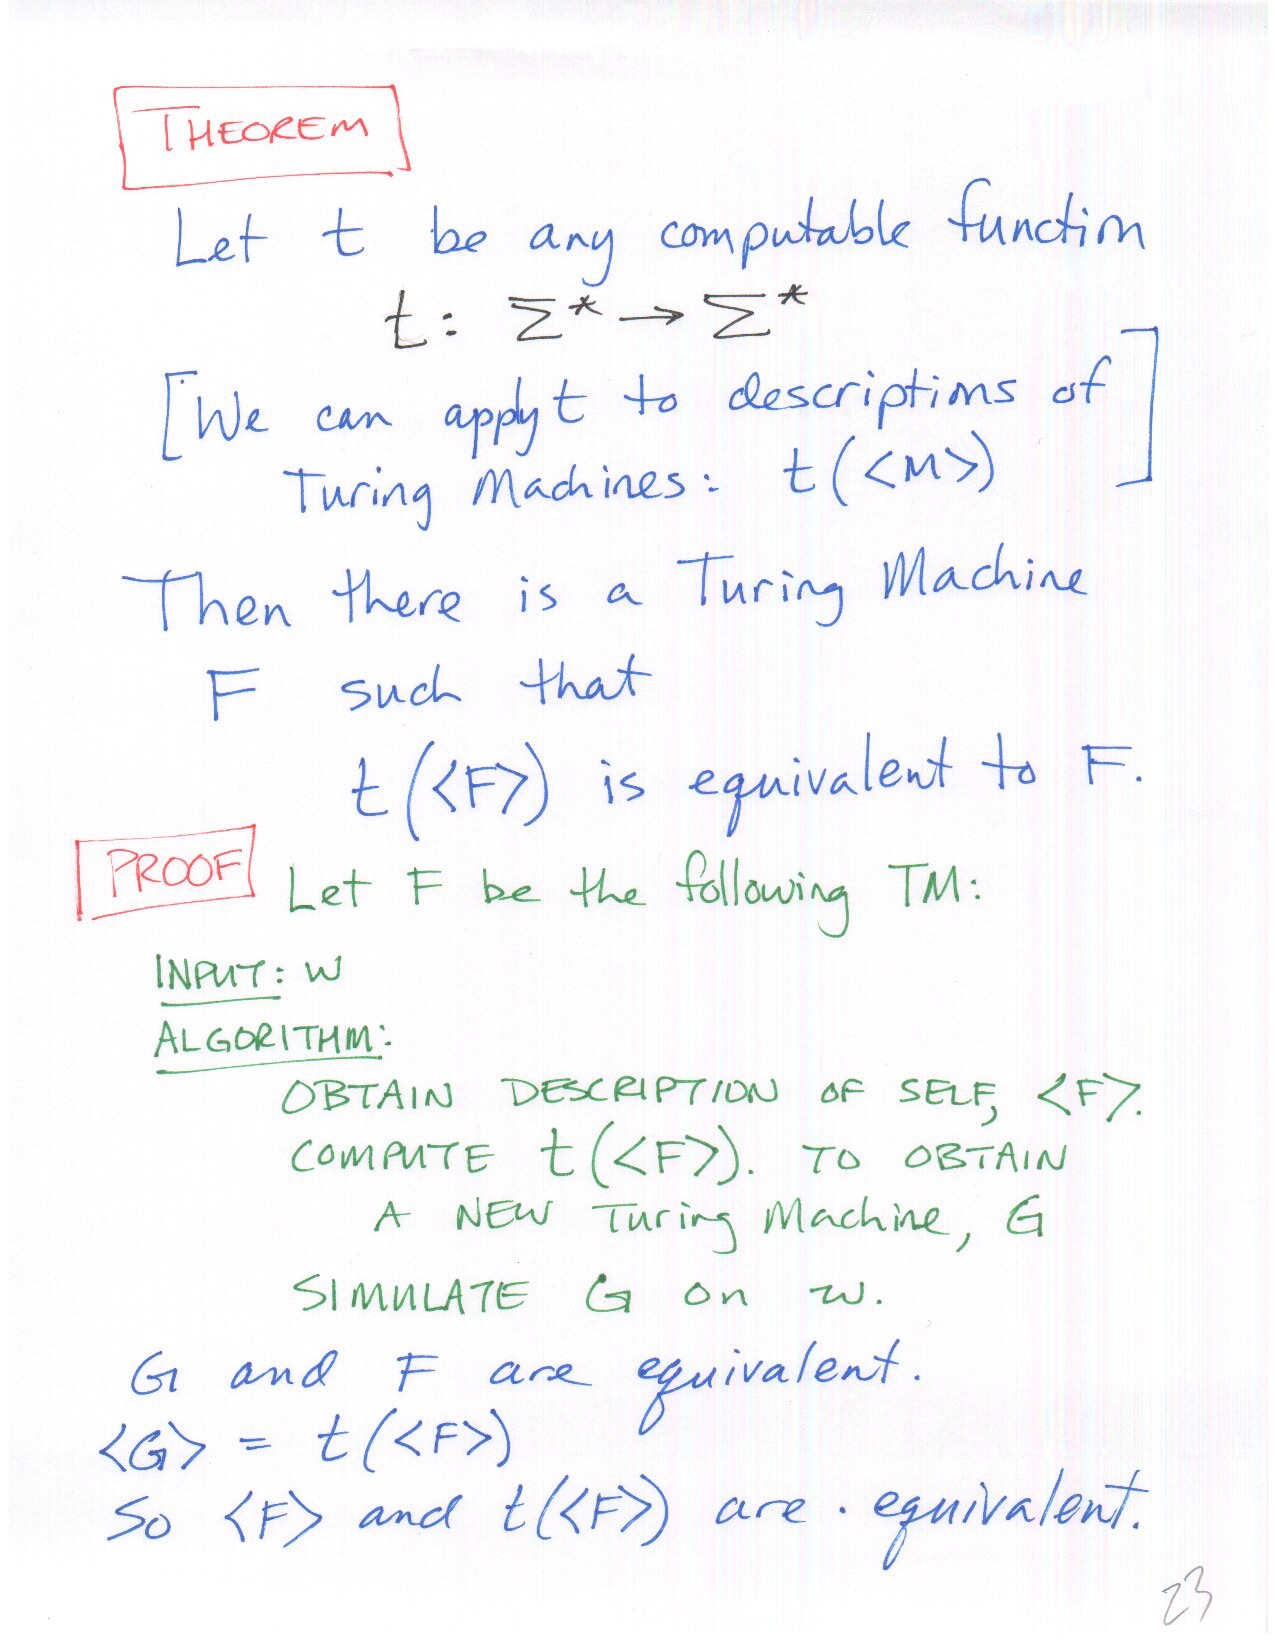 THEOREM
Let t be any computable function
t: Σ* → Σ*
[We can apply t to descriptions of
Turing Machines: t(<M>)]
Then there is a Turing Machine
F such that
t(<F>) is equivalent to F.
PROOF Let F be the following TM:
INPUT: w
ALGORITHM:
OBTAIN DESCRIPTION OF SELF, <F>.
COMPUTE t(<F>). TO OBTAIN
A NEW Turing Machine, G
SIMULATE G on w.
G and F are equivalent.
<G> = t(<F>)
So <F> and t(<F>) are . equivalent.
23